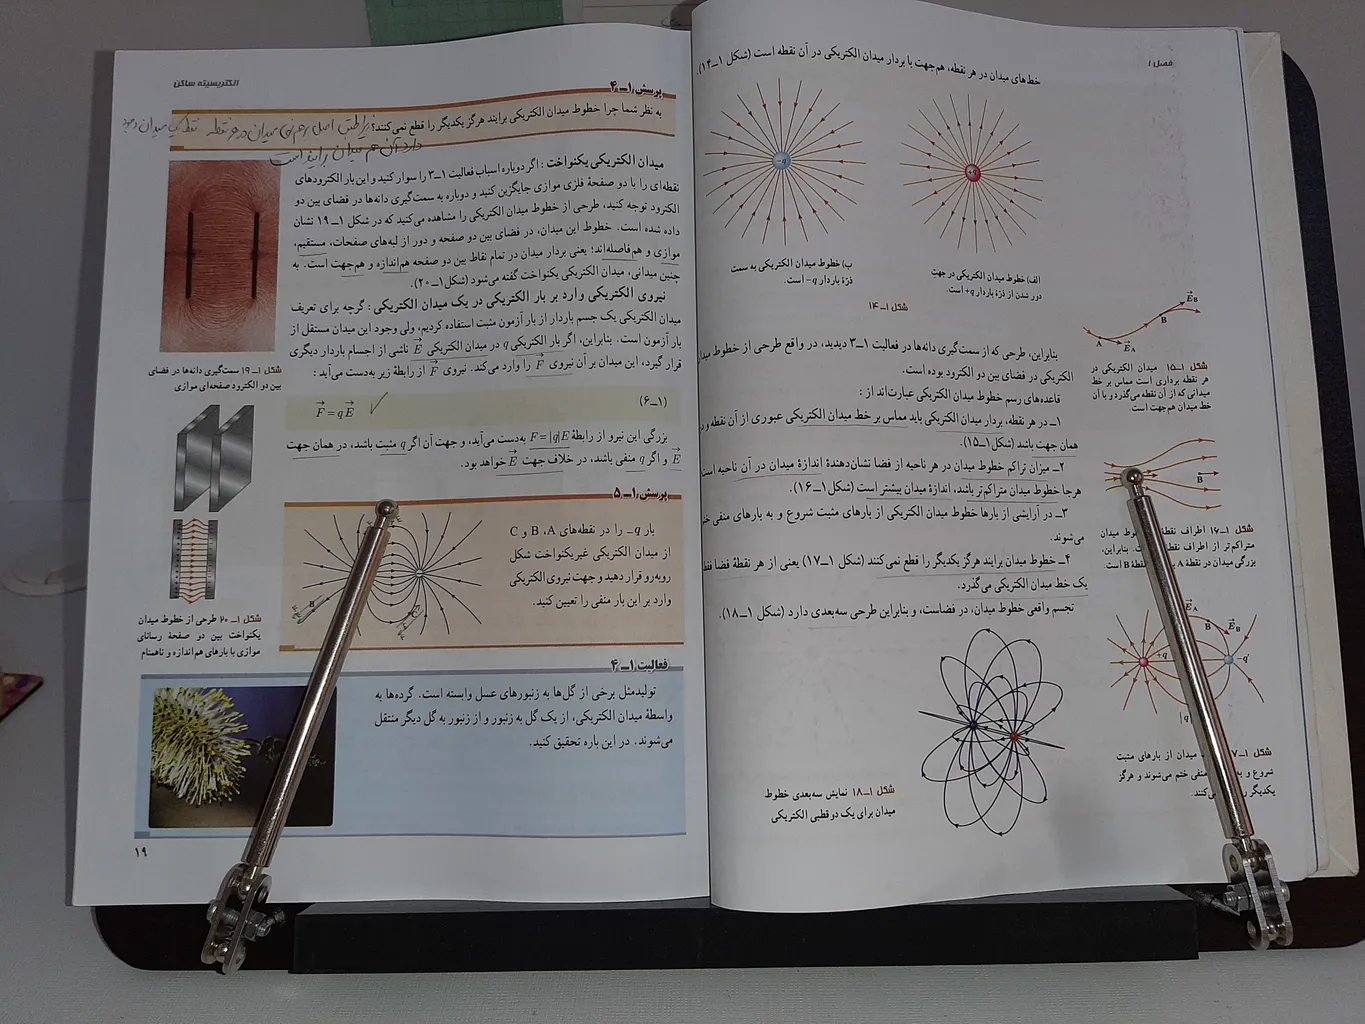 فصل ۱
خط‌های میدان در هر نقطه، هم‌جهت با بردار میدان الکتریکی در آن نقطه است (شکل ۱ــ۱۴).
−q
+q
الف) خطوط میدان الکتریکی در جهت
دور شدن از ذرهٔ باردار +q است.
ب) خطوط میدان الکتریکی به سمت
ذرهٔ باردار −q است.
شکل ۱ــ۱۴
بنابراین، طرحی که از سمت‌گیری دانه‌ها در فعالیت ۱ــ۳ دیدید، در واقع طرحی از خطوط
الکتریکی در فضای بین دو الکترود بوده است.
قاعده‌های رسم خطوط میدان الکتریکی عبارت‌اند از :
۱ــ در هر نقطه، بردار میدان الکتریکی باید مماس بر خط میدان الکتریکی عبوری از آن نقطه و در
همان جهت باشد (شکل۱ــ۱۵).
۲ــ میزان تراکم خطوط میدان در هر ناحیه از فضا نشان‌دهندهٔ اندازهٔ میدان در آن ناحیه است
هرجا خطوط میدان متراکم‌تر باشد، اندازهٔ میدان بیشتر است (شکل۱ــ۱۶).
۳ــ در آرایشی از بارها خطوط میدان الکتریکی از بارهای مثبت شروع و به بارهای منفی
می‌شوند.
۴ــ خطوط میدان برایند هرگز یکدیگر را قطع نمی‌کنند (شکل ۱ــ۱۷) یعنی از هر نقطهٔ فضا فقط
یک خط میدان الکتریکی می‌گذرد.
تجسم واقعی خطوط میدان، در فضاست، و بنابراین طرحی سه‌بعدی دارد (شکل ۱ــ۱۸).
شکل ۱ــ۱۸ نمایش سه‌بعدی خطوط
میدان برای یک دوقطبی الکتریکی
E B
B
A
E A
شکل ۱ــ۱۵ میدان الکتریکی در
هر نقطه برداری است مماس بر خط
میدانی که از آن نقطه می‌گذرد و با آن
خط میدان هم‌جهت است.
B
شکل ۱ــ۱۶ اطراف خطوط میدان
متراکم‌تر از اطراف نقطه است. بنابراین،
بزرگی میدان در نقطهٔ A نقطهٔ B است.
E A
B
E B
+q
−q'
شکل ۱ــ میدان از بارهای مثبت
شروع و منفی ختم می‌شوند و هرگز
یکدیگر نمی‌کنند.
الکتریسیته ساکن
پرسش ۱ــ۴
به نظر شما چرا خطوط میدان الکتریکی برایند هرگز یکدیگر را قطع نمی‌کنند؟
میدان الکتریکی یکنواخت : اگر دوباره اسباب فعالیت ۱ــ۳ را سوار کنید و این بار الکترودهای
نقطه‌ای را با دو صفحهٔ فلزی موازی جایگزین کنید و دوباره به سمت‌گیری دانه‌ها در فضای بین دو
الکترود توجه کنید، طرحی از خطوط میدان الکتریکی را مشاهده می‌کنید که در شکل ۱ــ۱۹ نشان
داده شده است. خطوط این میدان، در فضای بین دو صفحه و دور از لبه‌های صفحات، مستقیم،
موازی و هم‌فاصله‌اند؛ یعنی بردار میدان در تمام نقاط بین دو صفحه هم‌اندازه و هم‌جهت است. به
چنین میدانی، میدان الکتریکی یکنواخت گفته می‌شود (شکل۱ــ۲۰).
نیروی الکتریکی وارد بر بار الکتریکی در یک میدان الکتریکی : گرچه برای تعریف
میدان الکتریکی یک جسم باردار از بار آزمون مثبت استفاده کردیم، ولی وجود این میدان مستقل از
بار آزمون است. بنابراین، اگر بار الکتریکی q در میدان الکتریکی E ناشی از اجسام باردار دیگری
قرار گیرد، این میدان بر آن نیروی F را وارد می‌کند. نیروی F از رابطهٔ زیر به‌دست می‌آید :
F = qE (۱ــ۶)
بزرگی این نیرو از رابطهٔ F=|q|E به‌دست می‌آید، و جهت آن اگر q مثبت باشد، در همان جهت
E و اگر q منفی باشد، در خلاف جهت E خواهد بود.
شکل ۱ــ۱۹ سمت‌گیری دانه‌ها در فضای
بین دو الکترود صفحه‌ای موازی
شکل ۱ــ۲۰ طرحی از خطوط میدان
یکنواخت بین دو صفحهٔ رسانای
موازی با بارهای هم‌اندازه و ناهمنام
پرسش ۱ــ۵
بار −q را در نقطه‌های A، B و C
از میدان الکتریکی غیریکنواخت شکل
روبه‌رو قرار دهید و جهت نیروی الکتریکی
وارد بر این بار منفی را تعیین کنید.
B
C
فعالیت ۱ــ۴
تولیدمثل برخی از گل‌ها به زنبورهای عسل وابسته است. گرده‌ها به
واسطهٔ میدان الکتریکی، از یک گل به زنبور و از زنبور به گل دیگر منتقل
می‌شوند. در این باره تحقیق کنید.
۱۹